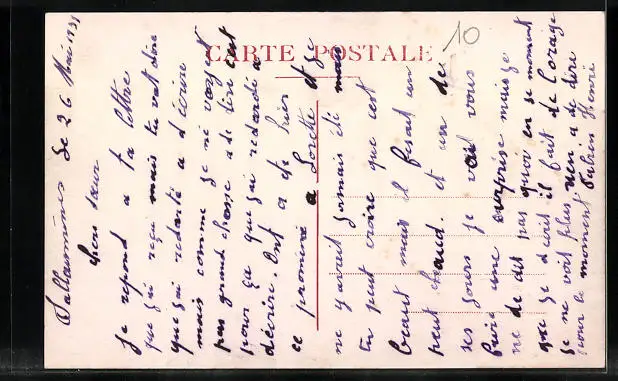 CARTE POSTALE
10
Sallaumines Le 26 Mai 1931
chers sœur
je repond a ta lettre
que j'ai reçu mais tu vat dire
que j'ai retarté a t'écrire
mais comme je ne voyait
pas grand chose a te dire c'est
pour ça que j'ai retardé a
t'écrire. Ont a été hier
ce promené a Lorette et je
ne y avait jamais été mais
tu peut croire que c'est
beaut mais il fesait un
peut chaud. et un de
ses jours je vait vous
faire une surprise mais je
ne te dit pas quoi en se moment
que je t'écrit il fait de l'orage
je ne voit plus rien a te dire
pour le moment Fabien Henri